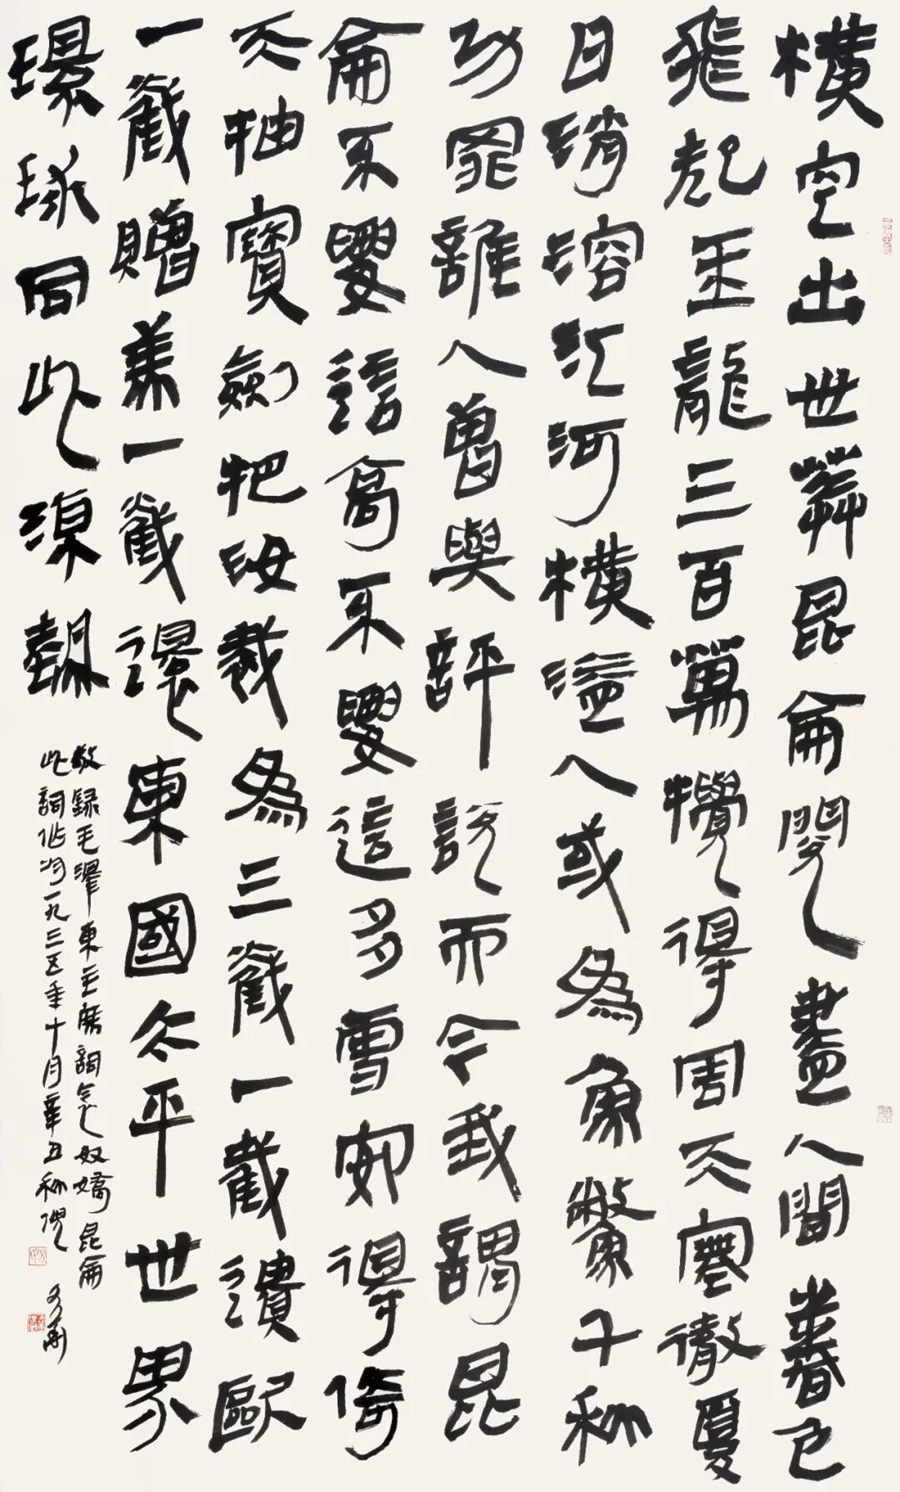 橫空出世莽昆侖閱盡人間春色
飛起玉龍三百萬攪得周天寒徹夏
日消溶江河橫溢人或為魚鱉千秋
功罪誰人曾與評說而今我謂昆
侖不要這高不要這多雪安得倚
天抽寶劍把汝裁為三截一截遺歐
一截贈美一截還東國太平世界
環球同此涼熱
敬錄毛澤東主席詞念奴嬌昆侖
此詞作於一九三五年十月辛丑秋